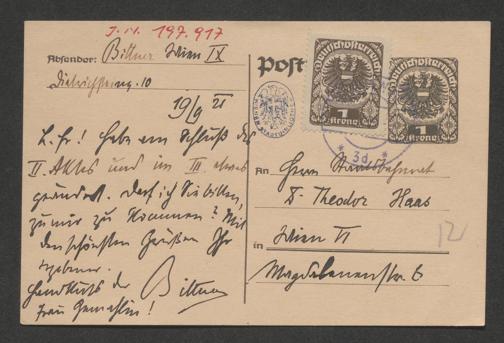 J.N. 197.917
Absender: Bittner Wien IX
Dietrichsteing. 10
19/9 21
L. Fr.! Habe am Schluß des
II. Aktes und im III. etwas
geändert. Darf ich Sie bitten,
zu mir zu kommen? Mit
den schönsten Grüßen Ihr
ergebener
Bittner
Handkuß der
Frau Gemahlin!
Post
Deutschösterreich
1
Krone
Deutschösterreich
1
Krone
* 3d *
An Herrn Staatsbahnrat
Dr Theodor Haas
in Wien VI
Magdalenenstr. 6
12